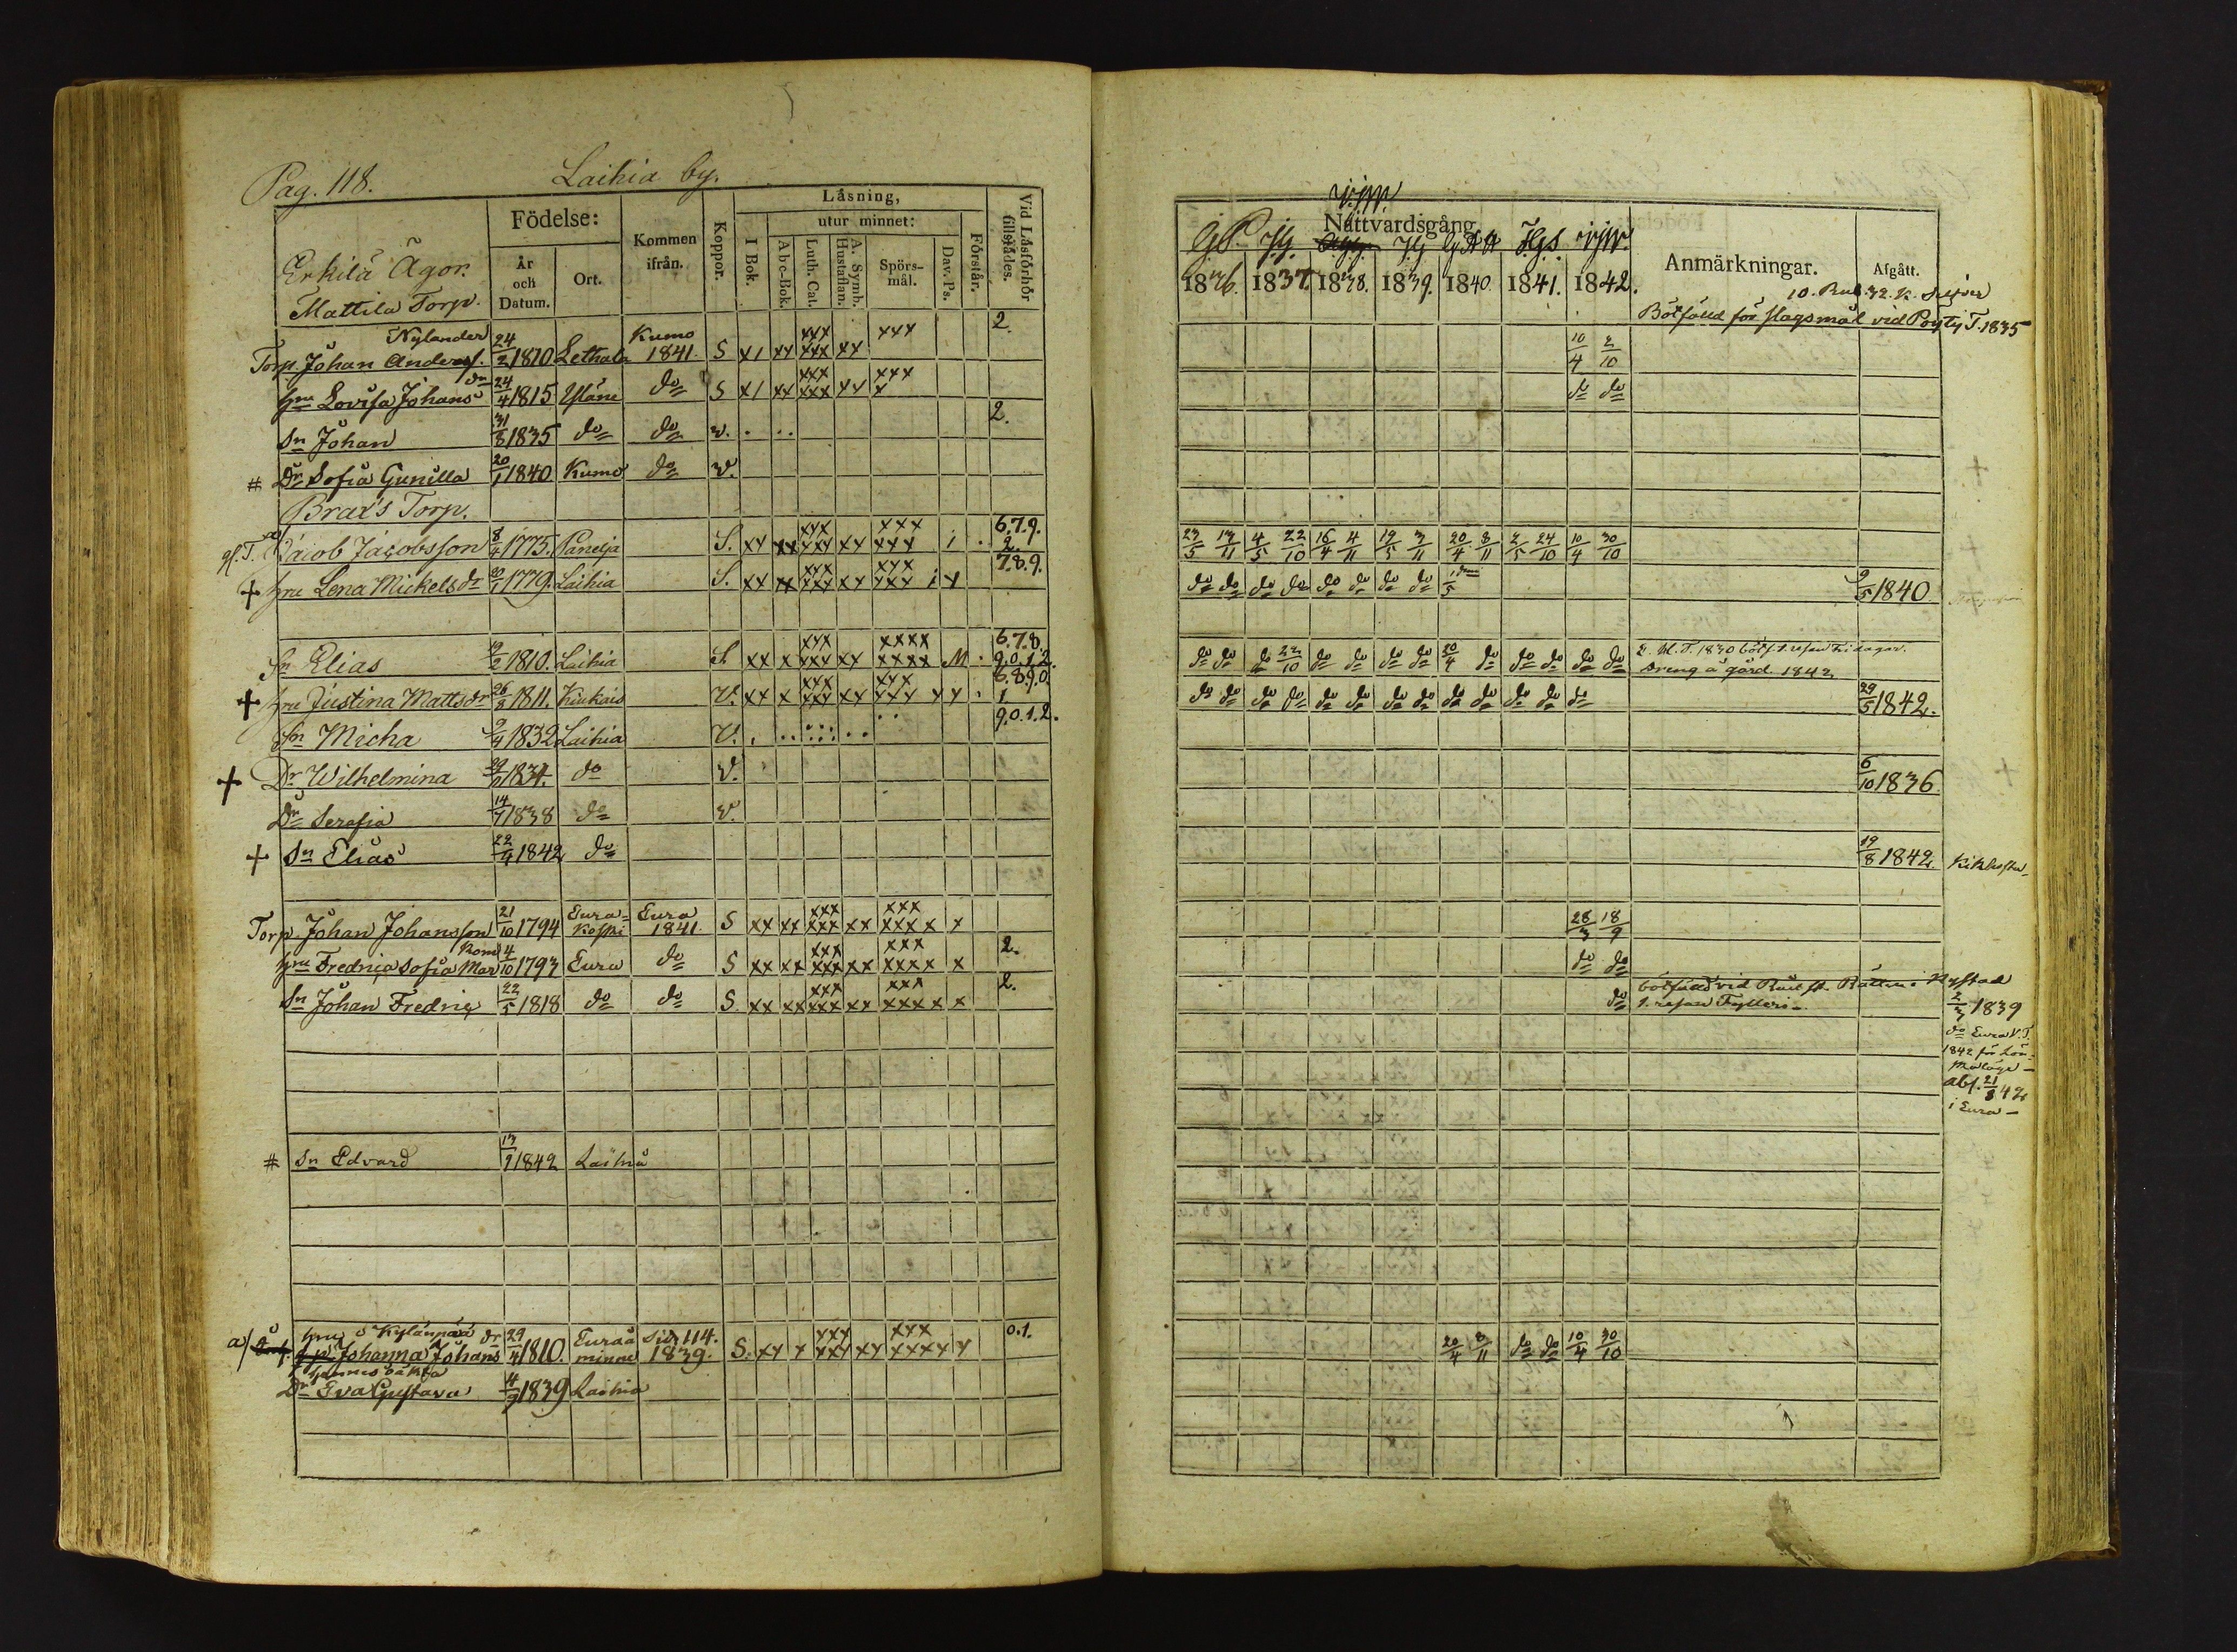 Pag. 118.
Laihia by.
Erkilä Ägor.
Mattila Torp.
Födelse:
År och Datum.
Ort.
Kommen ifrån.
Koppor.
Läsning,
I Bok.
utur minnet:
Abc-Bok.
Luth. Cat.
A. Symb. Hustaflan.
Spörsmål.
Dav. Ps.
Förstår.
Vid Läsförhör tillstädes.
Nylander
Torp. Johan Andersf. 24/2 1810 Lethala Kumo 1841. S x1 xx xxx xxx xx xxx 2.
hru Lovisa Johansdr 24/4 1815 Yläne do S x1 xx xxx xxx xx xxx x
Sn Johan 31/8 1835 do do v. . .. 2.
# Dr Sofia Gunilla 20/1 1840 Kumo do v.
Brax's Torp.
gf. T. a/ Jacob Jacobsson 8/4 1775. Panelja S. xx xx xxx xxx xx xxx xxx i . 6.7.9. 2.
+ hru Lena Mickelsdr 20/1 1779. Laihia S. xx xx xxx xxx xx xxx xxx i x 7.8.9.
Sn Elias 19/2 1810. Laihia S. xx x xxx xxx xx xxxx xxxx M . 6.7.8. 9.0.1.2.
+ hru Justina Mattsdr 26/8 1811. Kiukais V. xx x xxx xxx xx xxx xxx xx . 6.8.9.0. 1.
Sn Micha 9/4 1832 Laihia V. 9.0.1.2.
+ Dr Wilhelmina 1834. do V.
Dr Serafia 14/7 1838 do V.
+ Sn Elias 22/4 1842 do
Torp. Johan Johansson 21/10 1794 Eurakoski Eura 1841. S xx xx xxx xxx xx xxx xxxx x
hru Fredrica Sofia Mar 4/10 1793 Eura do S xx xx xxx xxx xx xxx xxxx x 2.
Sn Johan Fredric 22/5 1818 do do S. xx xx xxx xxx xx xxx xxxx x 2.
# Sn Edvard 13/9 1842 Laihia
a/ hru Kylänpää
Johanna Johansdr 29/4 1810. Euraåminne sid. 114. 1839. S. xx x xxx xxx xx xxx xxxx x 0.1.
hennes oäkta
Dr Eva Gustava 4/9 1839 Laihia
Nattvardsgång.
1836. 1837. 1838. 1839. 1840. 1841. 1842.
Anmärkningar.
Afgått.
10. Rub. 32. k. Silfver
Bötfälld för slagsmål vid Pöytis T. 1835
10/4 2/10
do do
23/5 13/11 4/5 22/10 16/4 4/11 19/5 3/11 20/4 8/11 2/5 24/10 10/4 30/10
do do do do do do do do 1/5 9/5 1840
do do do 22/10 do do do do 20/4 do do do do do
Dreng å gård. 1842
do do do do do do do do do do do do do 29/5 1842.
6/10 1836.
19/8 1842. Kikhosta
28/3 18/9
do do
do bötfälld vid Rådst. Rätten i Nystad
1. resan Fylleri 2/3 1839
do Eura V. T.
1842 för
abf. 21/8 42
i Eura
20/4 8/11 do do 10/4 30/10